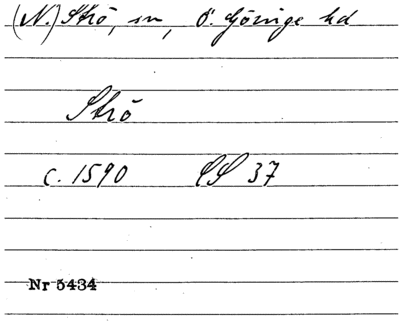 (N.) Strö, sn, Ö. Göinge hd
Strö
c. 1590 CS 37
Nr 5434